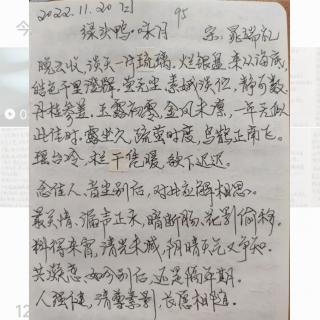 2022.11.20日
95
绿头鸭·咏月
宋 晁端礼
晚云收,淡天一片琉璃。烂银盘、来从海底,
皓色千里澄辉。莹无尘、素娥淡伫,静可数、
丹桂参差。玉露初零,金风未凛,一年无似
此佳时。露坐久,疏萤时度,乌鹊正南飞。
瑶台冷,栏干凭暖,欲下迟迟。
念佳人、音尘别后,对此应解相思。
最关情、漏声正永,暗断肠、花影偷移。
料得来宵,清光未减,阴晴天气又争知。
共凝恋、如今别后,还是隔年期。
人强健,清尊素影,长愿相随。